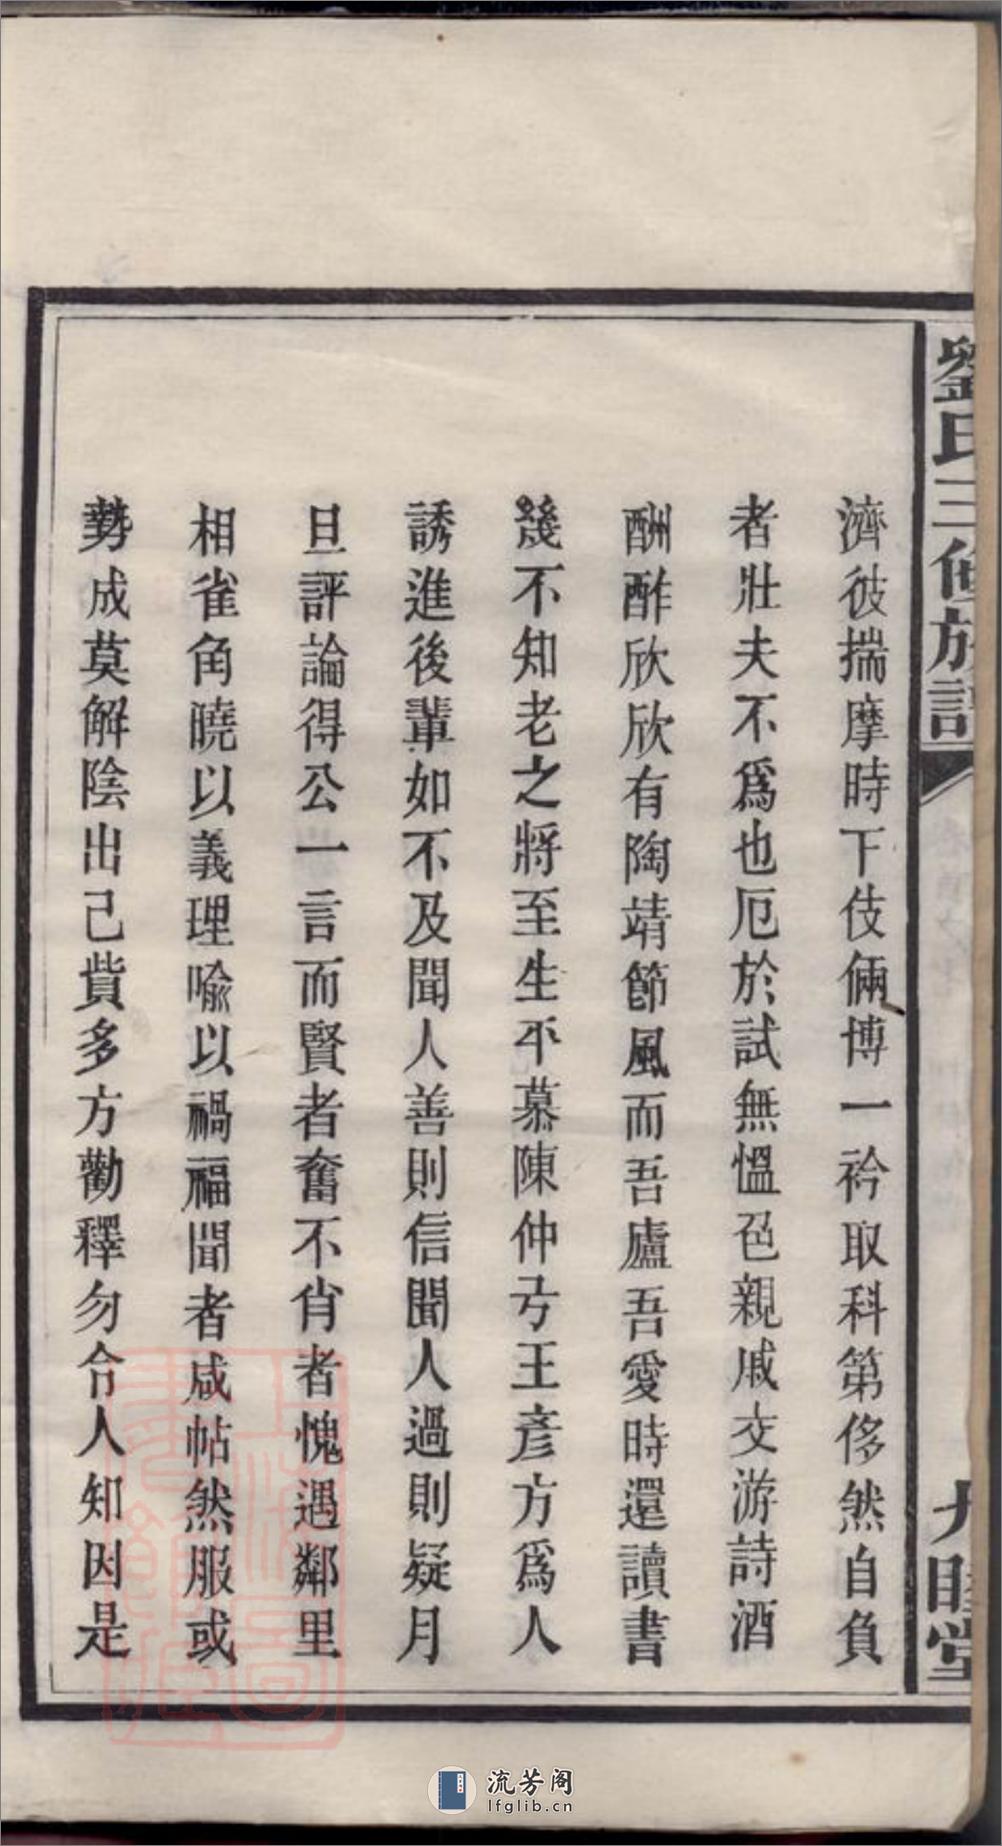 劉氏三修族譜
九睦堂
濟彼揣摩時下伎倆博一衿取科第侈然自負
者壯夫不爲也厄於試無慍色親戚交游詩酒
酬酢欣欣有陶靖節風而吾廬吾愛時還讀書
幾不知老之將至生平慕陳仲弓王彥方爲人
誘進後輩如不及聞人善則信聞人過則疑月
旦評論得公一言而賢者奮不肖者愧遇鄰里
相雀角曉以義理喻以禍福聞者咸帖然服或
勢成莫解陰出己貲多方勸釋勿令人知因是
流芳阁
lfglib.cn